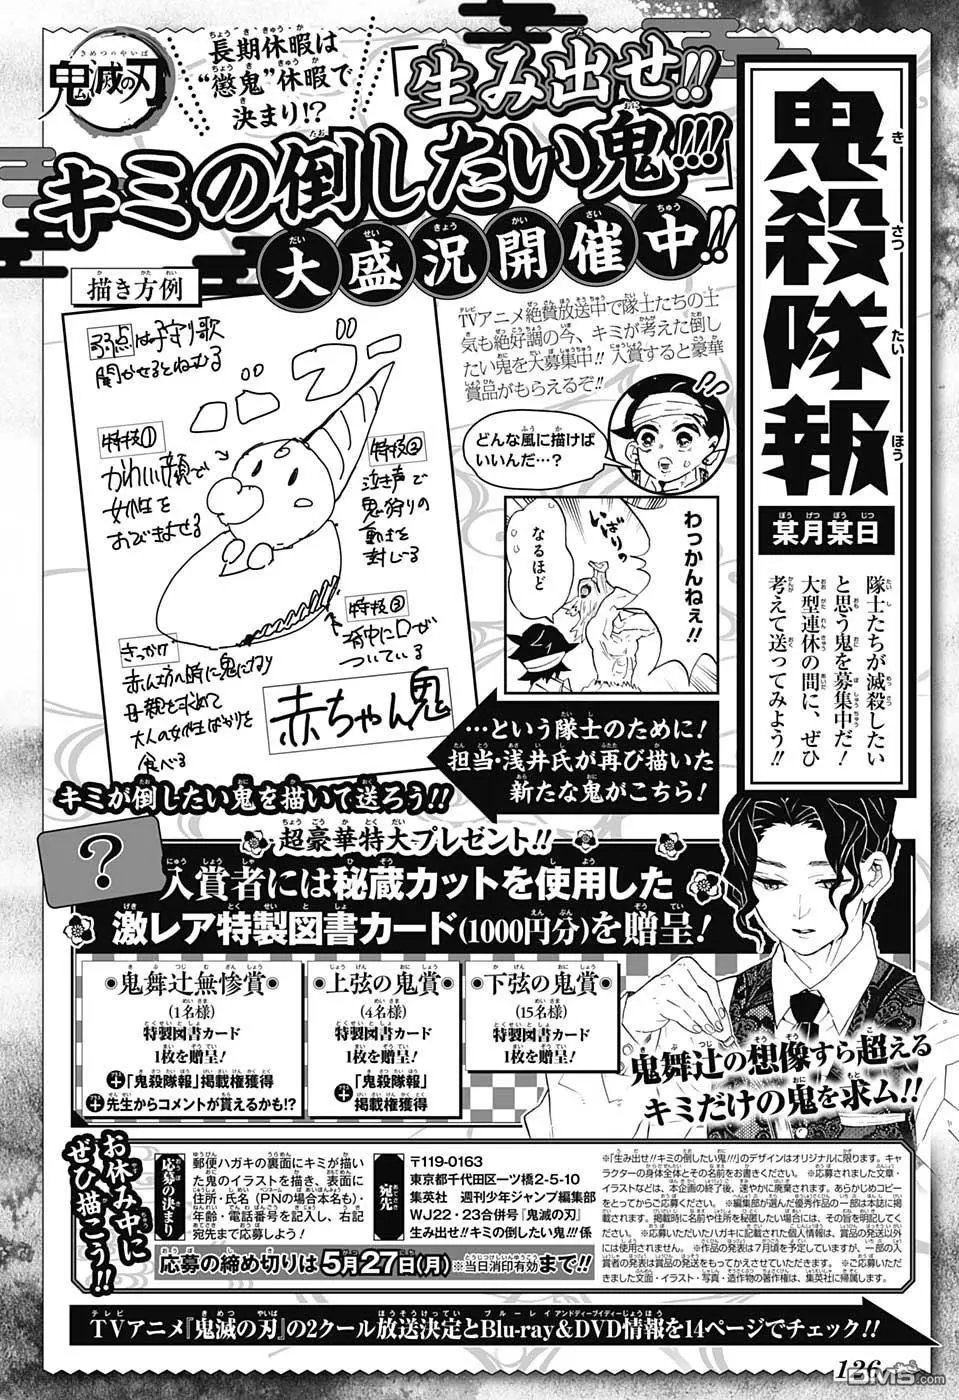 鬼滅の刃
長期休暇は
“懲鬼”休暇で
決まり!?
「生み出せ!!
キミの倒したい鬼!!!」
大盛況開催中!!
鬼殺隊報
某月某日
隊士たちが滅殺したい
と思う鬼を募集中だ!
大型連休の間に、ぜひ
考えて送ってみよう!!
TVアニメ絶賛放送中で隊士たちの士
気も絶好調の今、キミが考えた倒し
たい鬼を大募集中!! 入賞すると豪華
賞品がもらえるぞ!!
どんな風に描けば
いいんだ…?
わっかんねぇ!!
いばりっ
なるほど
描き方例
弱点は子守り歌
聞かせるとねむる
特技①
かわいい顔で
女性を
おびきよせる
特技②
泣き声で
鬼狩りの
動きを
封じる
特技③
背中に口が
ついている
きっかけ
赤ん坊の時に鬼になり
母親を求めて
大人の女性ばかりを
食べる
赤ちゃん鬼
…という隊士のために!
担当・浅井氏が再び描いた
新たな鬼がこちら!
キミが倒したい鬼を描いて送ろう!!
超豪華特大プレゼント!!
?
入賞者には秘蔵カットを使用した
激レア特製図書カード(1000円分)を贈呈!
鬼舞辻無惨賞
(1名様)
特製図書カード
1枚を贈呈!
+「鬼殺隊報」掲載権獲得
+先生からコメントが貰えるかも!?
上弦の鬼賞
(4名様)
特製図書カード
1枚を贈呈!
+「鬼殺隊報」
掲載権獲得
下弦の鬼賞
(15名様)
特製図書カード
1枚を贈呈!
鬼舞辻の想像すら超える
キミだけの鬼を求ム!!
お休み中に
ぜひ描こう!!
応募の決まり
郵便ハガキの裏面にキミが描い
た鬼のイラストを描き、表面に
住所・氏名(PNの場合本名も)・
年齢・電話番号を記入し、右記
宛先まで応募しよう!
宛先
〒119-0163
東京都千代田区一ツ橋2-5-10
集英社 週刊少年ジャンプ編集部
WJ22・23合併号『鬼滅の刃』
生み出せ!!キミの倒したい鬼!!!係
応募の締め切りは5月27日(月)※当日消印有効まで!!
※「生み出せ!!キミの倒したい鬼!!!」のデザインはオリジナルに限ります。キャ
ラクターの身体全体とその名前をお書きください。※応募されました文章・
イラストなどは、本企画の終了後、速やかに廃棄されます。あらかじめコピー
をとってからご応募ください。※編集部が選んだ優秀作品の一部は本誌に掲
載されます。掲載時に名前や住所を秘匿したい場合には、その旨を明記してく
ださい。※ご応募いただきましたハガキに記載された個人情報は、賞品の発送以外
には使用されません。※作品の発表は7月頃を予定していますが、一部の入
賞者の発表は賞品の発送をもってかえさせていただきます。※ご応募いただ
きました文面・イラスト・写真・造作物の著作権は、集英社に帰属します。
TVアニメ『鬼滅の刃』の2クール放送決定とBlu-ray&DVD情報を14ページでチェック!!
126